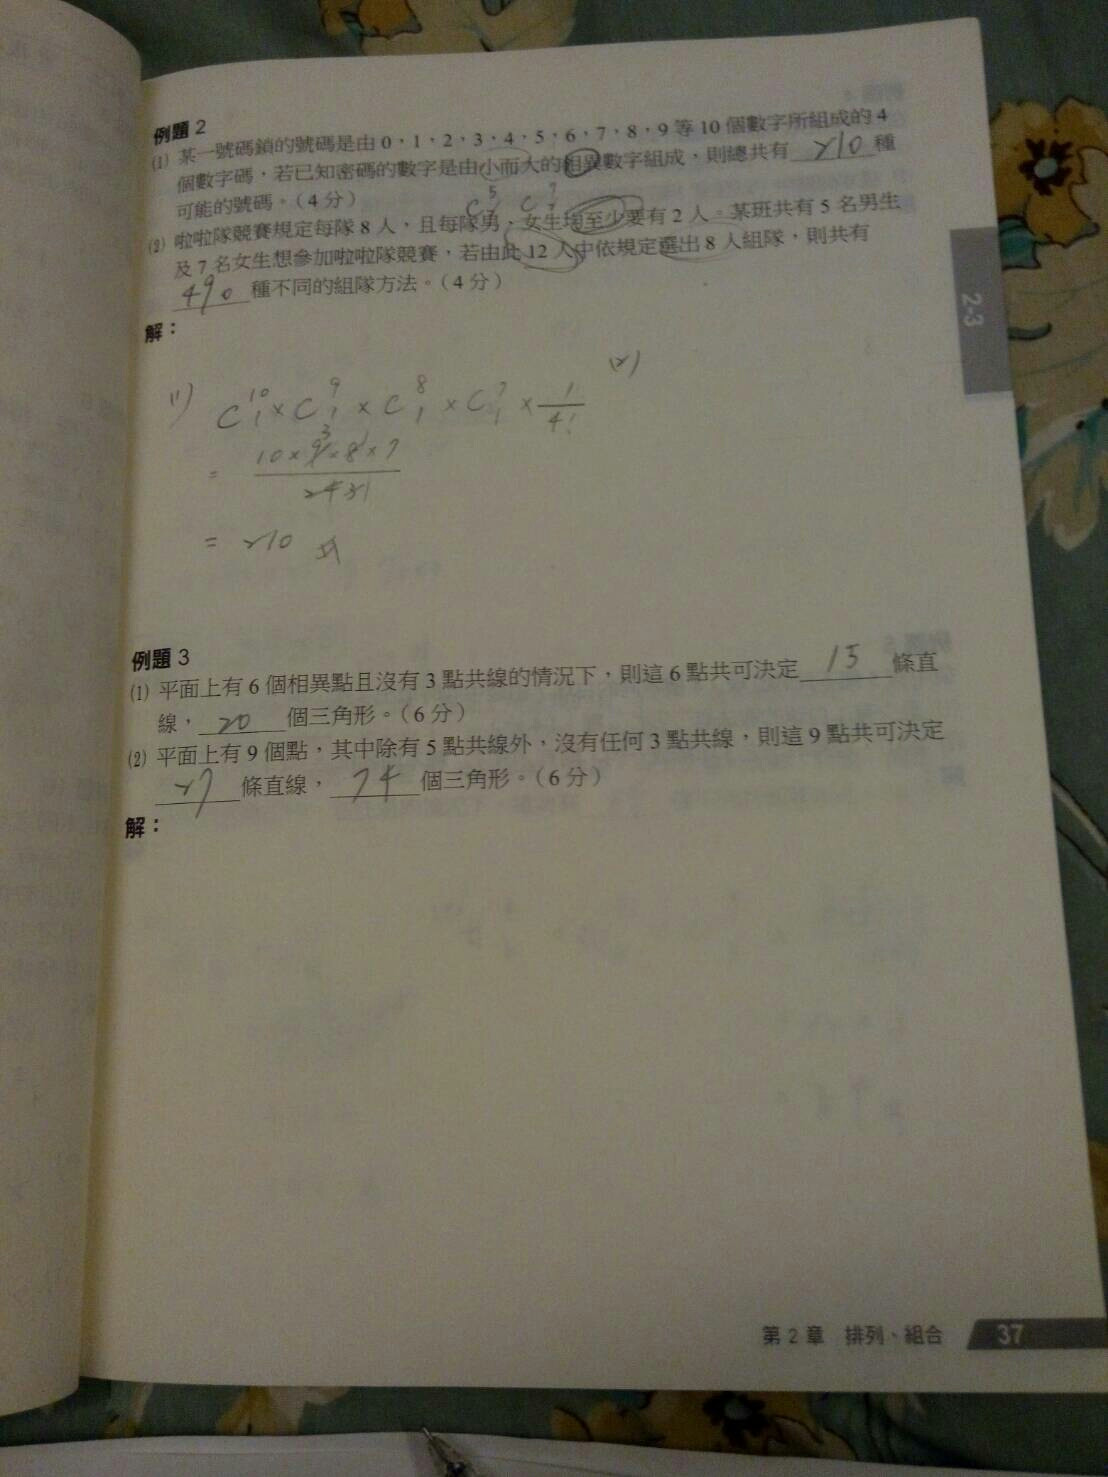 例題 2
(1) 某一號碼鎖的號碼是由 0、1、2、3、4、5、6、7、8、9 等 10 個數字所組成的 4
個數字碼,若已知密碼的數字是由小而大的相異數字組成,則總共有 210 種
可能的號碼。(4 分)
(2) 啦啦隊競賽規定每隊 8 人,且每隊男、女生均至少要有 2 人。某班共有 5 名男生
及 7 名女生想參加啦啦隊競賽,若由此 12 人中依規定選出 8 人組隊,則共有
490 種不同的組隊方法。(4 分)
解:
(1) (2)
C¹⁰₁ × C⁹₁ × C⁸₁ × C⁷₁ × 1/4!
= 10×9×8×7 / 2431
= 210
例題 3
(1) 平面上有 6 個相異點且沒有 3 點共線的情況下,則這 6 點共可決定 15 條直
線, 20 個三角形。(6 分)
(2) 平面上有 9 個點,其中除有 5 點共線外,沒有任何 3 點共線,則這 9 點共可決定
27 條直線, 74 個三角形。(6 分)
解:
2-3
第 2 章 排列、組合 37